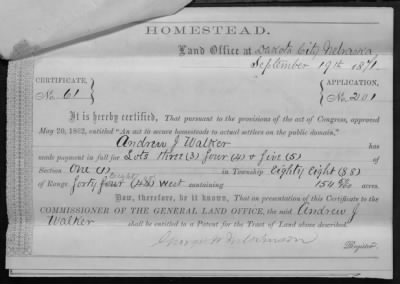 HOMESTEAD.
Land Office at Dakota City Nebraska
September 19th 1871.
CERTIFICATE, APPLICATION,
No. 61 No. 201
It is hereby certified, That pursuant to the provisions of the act of Congress, approved
May 20, 1862, entitled "An act to secure homesteads to actual settlers on the public domain,"
Andrew J Walker has
made payment in full for Lots three (3) four (4) & five (5) of
Section One (1) in Township Eighty Eight (88)
of Range forty four (44) West containing 154 acres.
Now, therefore, be it known, That on presentation of this Certificate to the
COMMISSIONER OF THE GENERAL LAND OFFICE, the said Andrew J
Walker shall be entitled to a Patent for the Tract of Land above described.
Register.